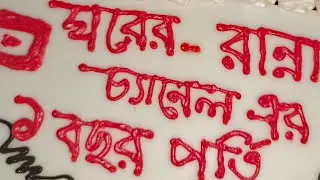 ঘরের.. রান্না
চ্যানেল এর
১ বছর পূর্তি